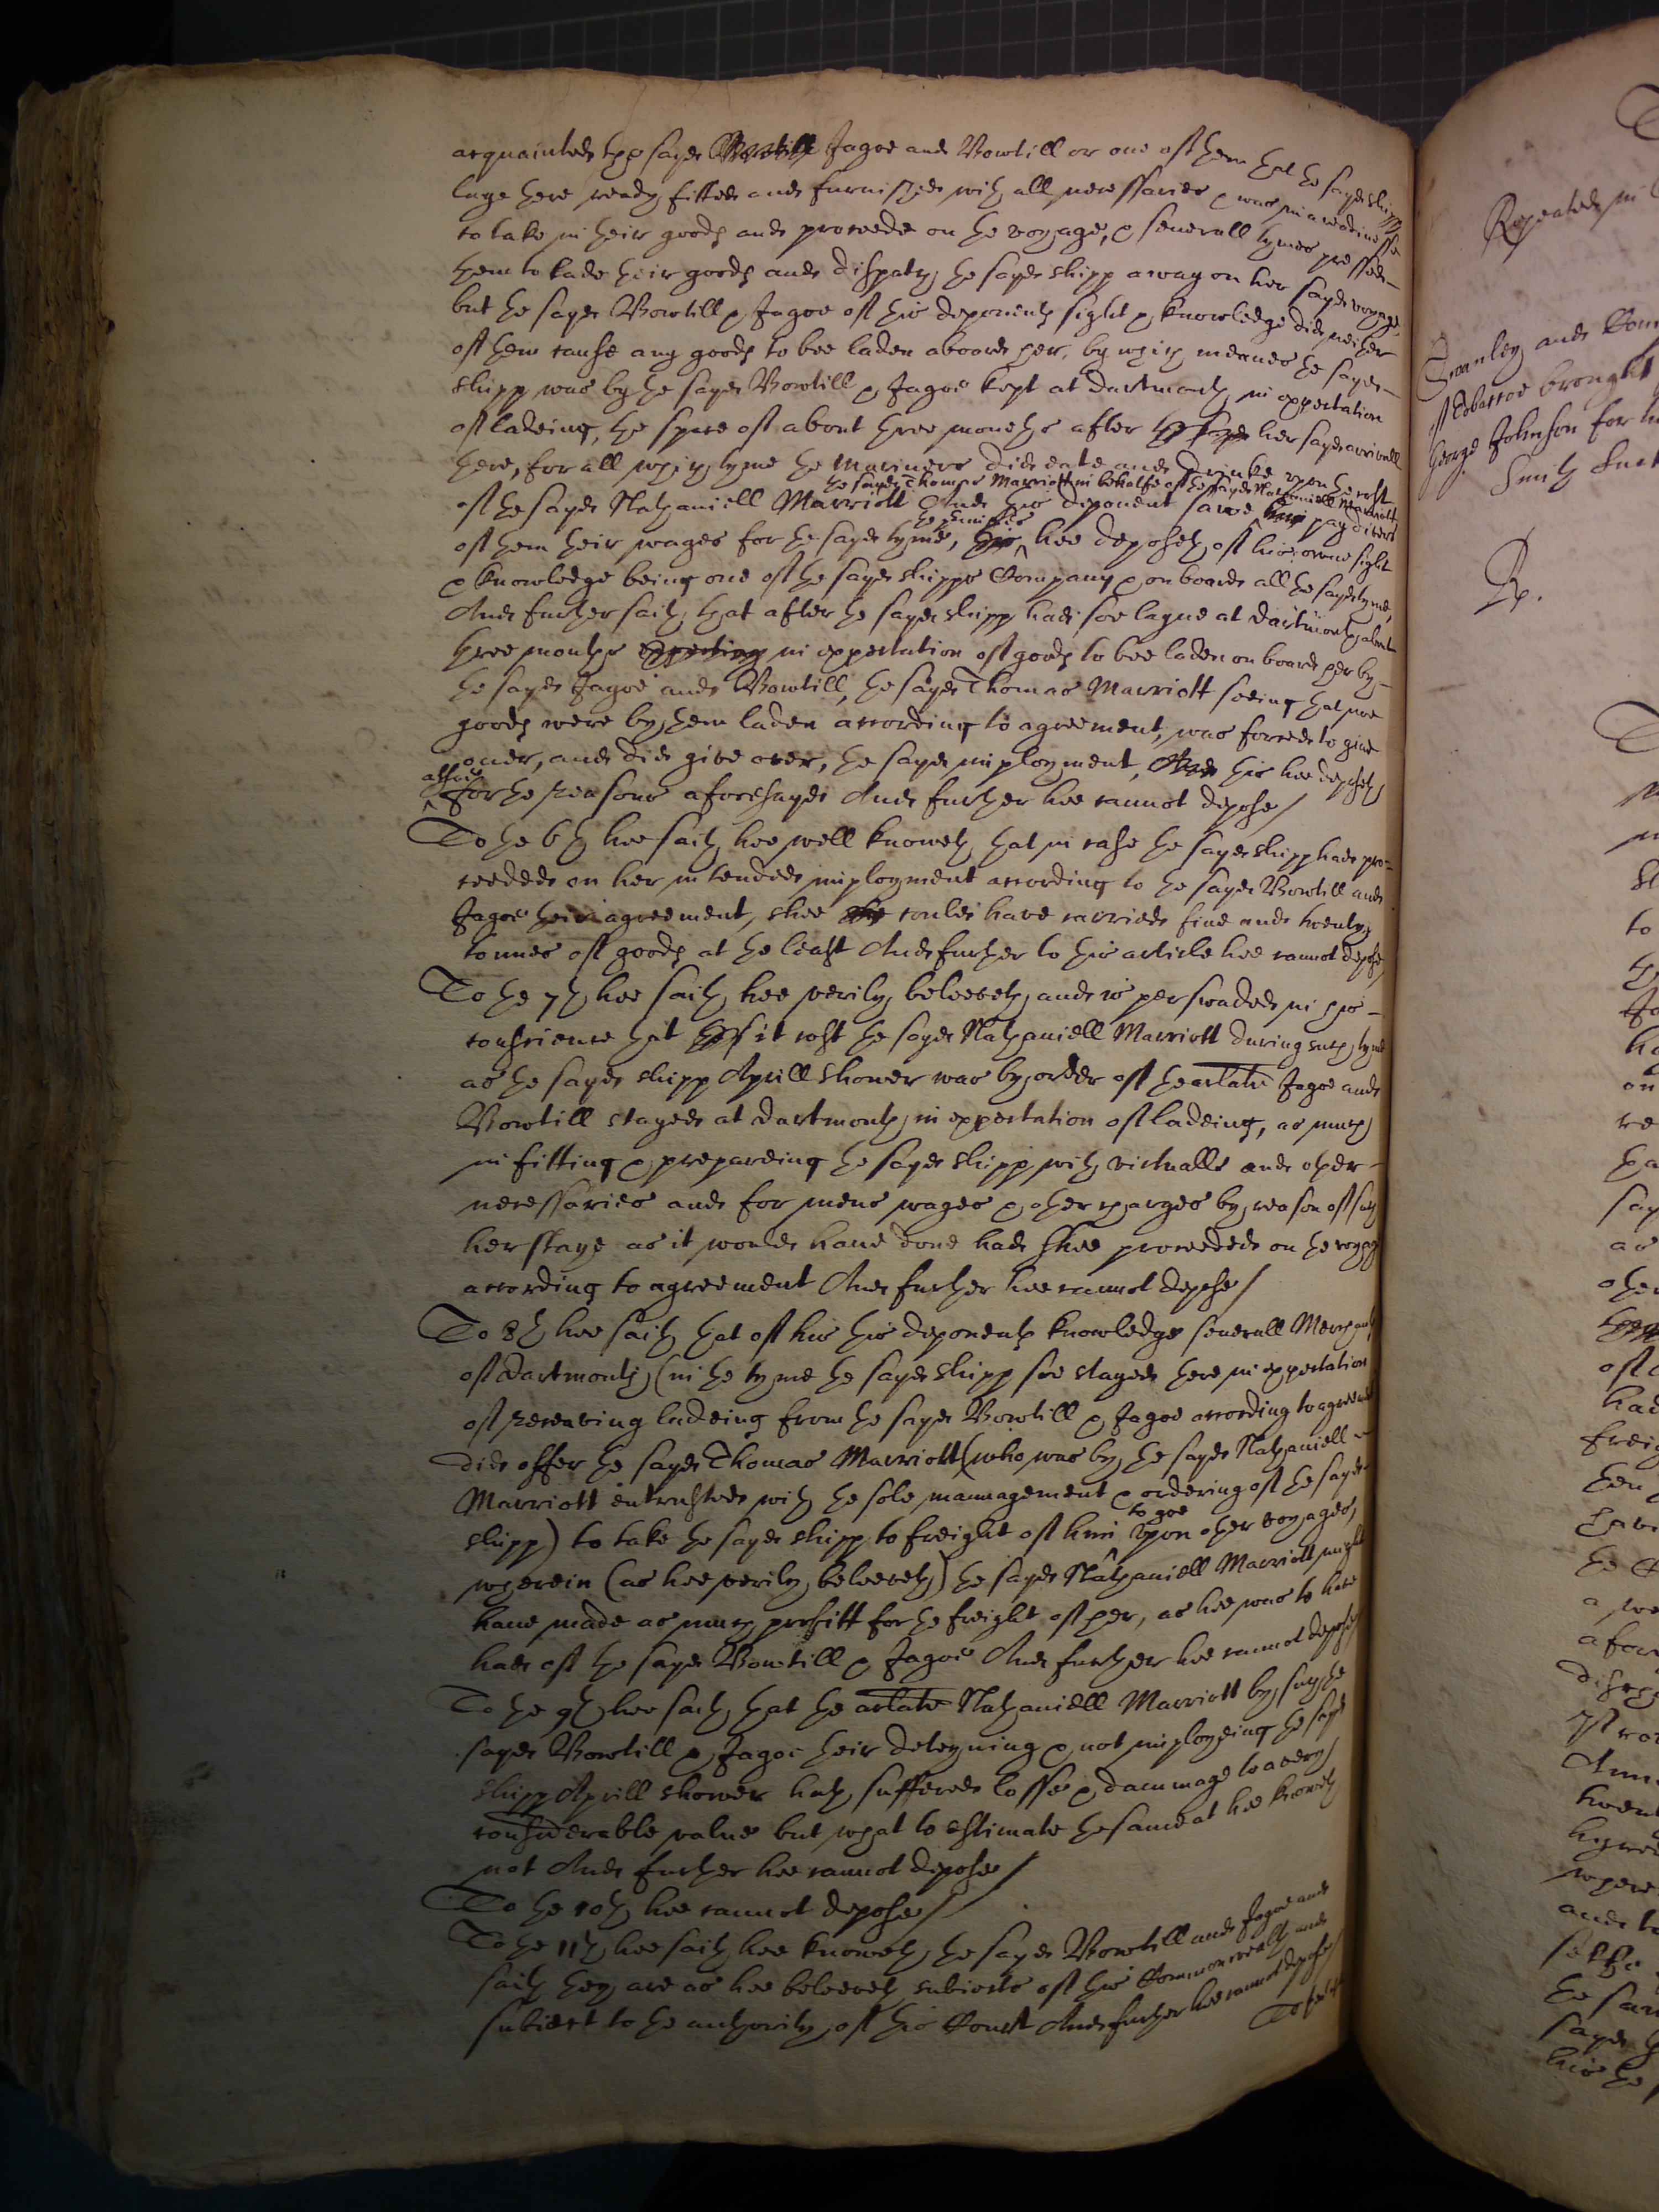 acquainted the sayd Jagoe and Bowtill or one of them that the sayd shipp
laye there ready fitted and furnished with all necessaries & was in a readinesse
to take in their goods and proceede on the voyage, & severall tymes pressed
them to lade their goods and dispatch the sayd shipp away on her sayd voyage,
but the sayd Bowtill & Jagoe of this deponents sight & knowledge did neither
of them cause any goods to bee laden aboard her, by which meanes the sayd
shipp was by the sayd Bowtill & Jagoe kept at Dartmouth in expectation
of ladeing, the space of about three moneths after her sayd arrivall
there, for all which tyme the Mariners did eate and drinke upon the cost
of the sayd Nathaniell Marriott And this deponent sawe the sayd Thomas Marriott in behalfe of the sayd Nathaniell Marriott pay divers
of them their wages for the sayd tyme, the premisses hee deposeth of his owne sight
& knowledge being one of the sayd shipps Company & on board all the sayd tyme,
And further saith that after the sayd shipp had soe layne at Dartmouth about
three months expecting in expectation of goods to bee laden on board her by
the sayd Jagoe and Bowtill, the sayd Thomas Marriott seeing that noe
goods were by them laden according to agreement, was forced to give
over, and did give over, the sayd imployment, And this hee deposeth
alsoe for the reasons aforesayd And further hee cannot depose/
To the 6th hee saith hee well knoweth that in case the sayd shipp had pro-
ceeded on her intended imployment according to the sayd Bowtill and
Jagoe their agreement, shee could have carried five and twenty
tonnes of goods at the least And further to this article hee cannot depose/
To the 7th hee saith hee verily beleeveth and is perswaded in his
conscience that it cost the sayd Nathaniell Marriott during such tyme
as the sayd shipp Aprill shower was by order of the arlate Jagoe and
Bowtill stayed at Dartmouth in expectation of ladeing, as much
in fitting & prepareing the sayd shipp with victualls and other
necessaries and for mens wages & other charges by reason of such
her staye as it would have done had shee proceeded on the voyage
according to agreement And further hee cannot depose/
To 8th hee saith that of his this deponents knowledge severall Merchants
of Dartmouth (in the tyme the sayd shipp soe stayed there in expectation
of receaving ladeing from the sayd Bowtill & Jagoe according to agreement
did offer the sayd Thomas Marriott (who was by the sayd Nathaniell
Marriott entrusted with the sole mannagement & ordering of the sayd
shipp) to take the sayd shipp to freight of him to goe upon other voyages,
wherein (as hee verily beleeveth) the sayd Nathaniell Marriott might
have made as much proffitt for the freight of her, as hee was to have
had of the sayd Bowtill & Jagoe And further hee cannot depose/
To the 9th hee saith that the arlate Nathaniell Marriott by such the
sayd Bowtill & Jagoe their deteyning & not imployeing the sayd
shipp Aprill shower hath suffered losse & dammage to a very
considerable value but what to estimate the same at hee knoweth
not And further hee cannot depose/
To the 10th hee cannot depose/
To the 11th hee saith hee knoweth the sayd Bowtill and Jagoe and
saith they are as hee beleeveth subiects of this Commonwealth and
subiect to the authority of this Court And further hee cannot depose/
To the
Repeated in
brought
George Johnson for
Smith
R.